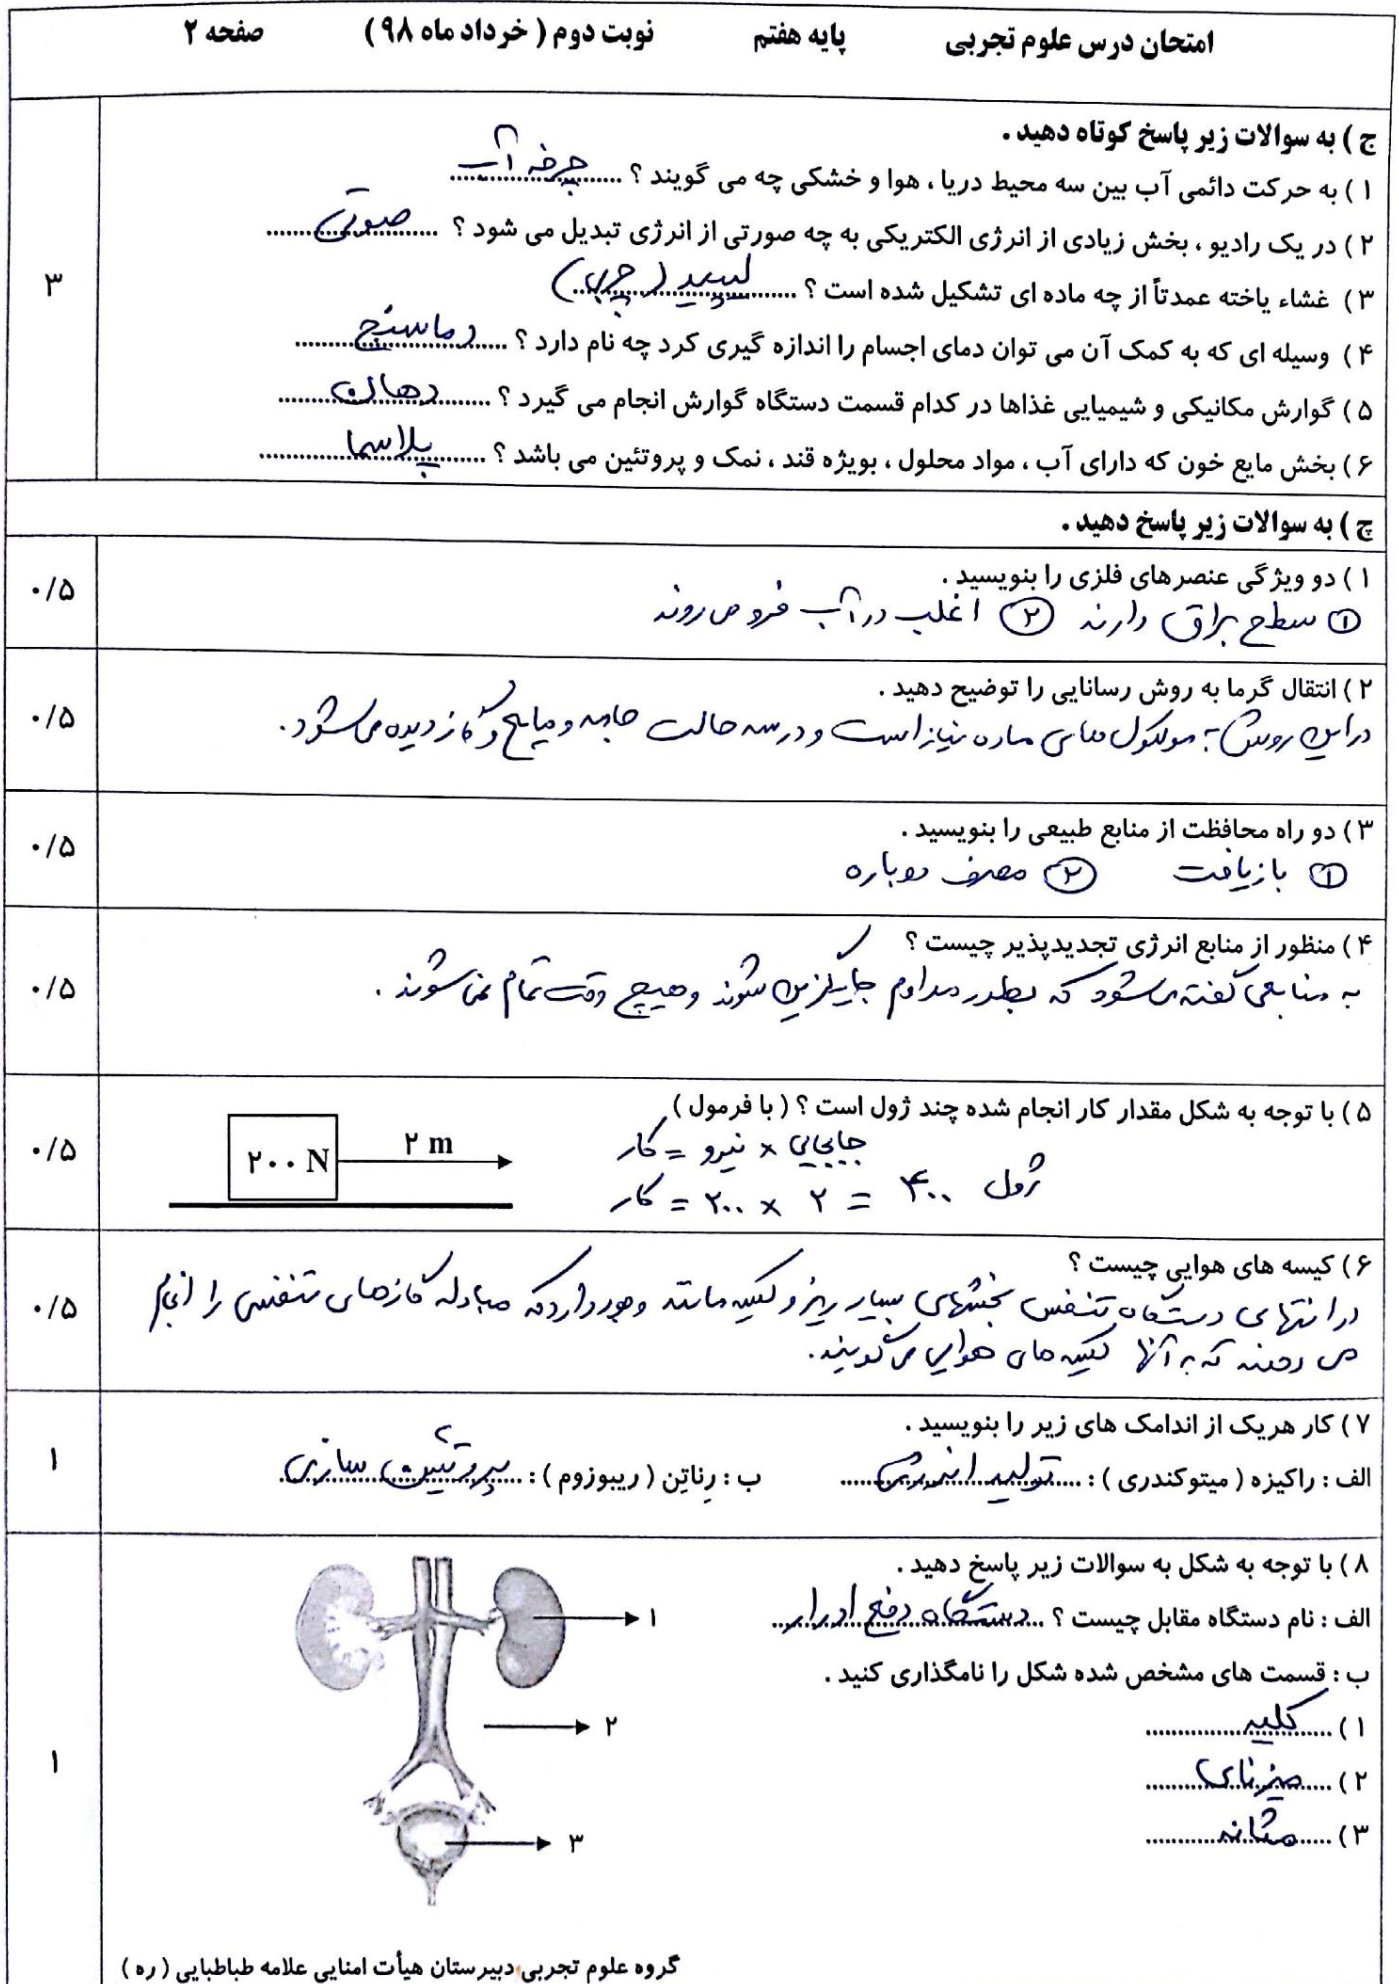 امتحان درس علوم تجربی پایه هفتم نوبت دوم ( خرداد ماه ۹۸ ) صفحه ۲
ج ) به سوالات زیر پاسخ کوتاه دهید .
۱ ) به حرکت دائمی آب بین سه محیط دریا ، هوا و خشکی چه می گویند ؟ چرخه آب
۲ ) در یک رادیو ، بخش زیادی از انرژی الکتریکی به چه صورتی از انرژی تبدیل می شود ؟ صوتی
۳ ) غشاء یاخته عمدتاً از چه ماده ای تشکیل شده است ؟ لیپید ( چربی )
۴ ) وسیله ای که به کمک آن می توان دمای اجسام را اندازه گیری کرد چه نام دارد ؟ دماسنج
۵ ) گوارش مکانیکی و شیمیایی غذاها در کدام قسمت دستگاه گوارش انجام می گیرد ؟ دهان
۶ ) بخش مایع خون که دارای آب ، مواد محلول ، بویژه قند ، نمک و پروتئین می باشد ؟ پلاسما
۳
چ ) به سوالات زیر پاسخ دهید .
۱ ) دو ویژگی عنصرهای فلزی را بنویسید .
۱ سطح براق دارند ۲ اغلب در آب فرو می روند
۰/۵
۲ ) انتقال گرما به روش رسانایی را توضیح دهید .
در این روش به مولکول های ماده نیاز است و در سه حالت جامد و مایع و گاز دیده می شود .
۰/۵
۳ ) دو راه محافظت از منابع طبیعی را بنویسید .
۱ بازیافت ۲ مصرف دوباره
۰/۵
۴ ) منظور از منابع انرژی تجدیدپذیر چیست ؟
به منابعی گفته می شود که بطور مداوم جایگزین شوند و هیچ وقت تمام نمی شوند .
۰/۵
۵ ) با توجه به شکل مقدار کار انجام شده چند ژول است ؟ ( با فرمول )
جابجایی × نیرو = کار
ژول ۴۰۰ = ۲ × ۲۰۰ = کار
۲۰۰ N
۲ m
۰/۵
۶ ) کیسه های هوایی چیست ؟
در انتهای دستگاه تنفس بخشهای بسیار ریز و کیسه مانند وجود دارد که مبادله گازهای تنفسی را انجام
می دهند که به آنها کیسه های هوایی می گویند .
۰/۵
۷ ) کار هریک از اندامک های زیر را بنویسید .
الف : راکیزه ( میتوکندری ) : تولید انرژی ب : رِناتِن ( ریبوزوم ) : پروتئین سازی
۱
۸ ) با توجه به شکل به سوالات زیر پاسخ دهید .
الف : نام دستگاه مقابل چیست ؟ دستگاه دفع ادرار
ب : قسمت های مشخص شده شکل را نامگذاری کنید .
۱ ) کلیه
۲ ) میزنای
۳ ) مثانه
۱
۲
۳
۱
گروه علوم تجربی دبیرستان هیأت امنایی علامه طباطبایی ( ره )